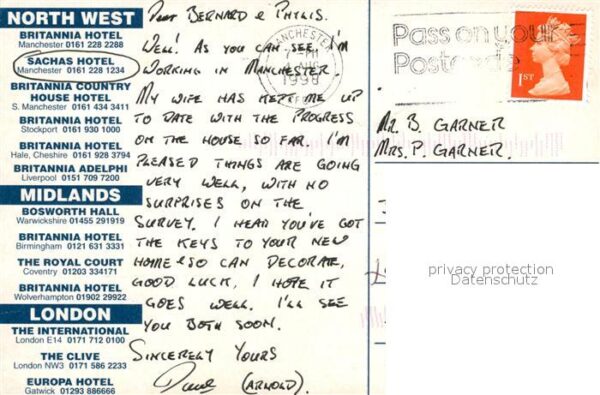 NORTH WEST
BRITANNIA HOTEL
Manchester 0161 228 2288
SACHAS HOTEL
Manchester 0161 228 1234
BRITANNIA COUNTRY
HOUSE HOTEL
S. Manchester 0161 434 3411
BRITANNIA HOTEL
Stockport 0161 930 1000
BRITANNIA HOTEL
Hale, Cheshire 0161 928 3794
BRITANNIA ADELPHI
Liverpool 0151 709 7200
MIDLANDS
BOSWORTH HALL
Warwickshire 01455 291919
BRITANNIA HOTEL
Birmingham 0121 631 3331
THE ROYAL COURT
Coventry 01203 334171
BRITANNIA HOTEL
Wolverhampton 01902 29922
LONDON
THE INTERNATIONAL
London E14 0171 712 0100
THE CLIVE
London NW3 0171 586 2233
EUROPA HOTEL
Gatwick 01293 886666
Dear BERNARD & PHYLIS.
WELL! AS YOU CAN SEE, I'M
WORKING IN MANCHESTER.
MY WIFE HAS KEPT ME UP
TO DATE WITH THE PROGRESS
ON THE HOUSE SO FAR. I'M
PLEASED THINGS ARE GOING
VERY WELL, WITH NO
SURPRISES ON THE
SURVEY. I HEAR YOU'VE GOT
THE KEYS TO YOUR NEW
HOME & SO CAN DECORATE,
GOOD LUCK, I HOPE IT
GOES WELL. I'LL SEE
YOU BOTH SOON.
SINCERELY YOURS
Dave (ARNOLD).
MANCHESTER
AUG
1998
Pass on your
Postcode
1ST
MR. B. GARNER
MRS. P. GARNER.
privacy protection
Datenschutz